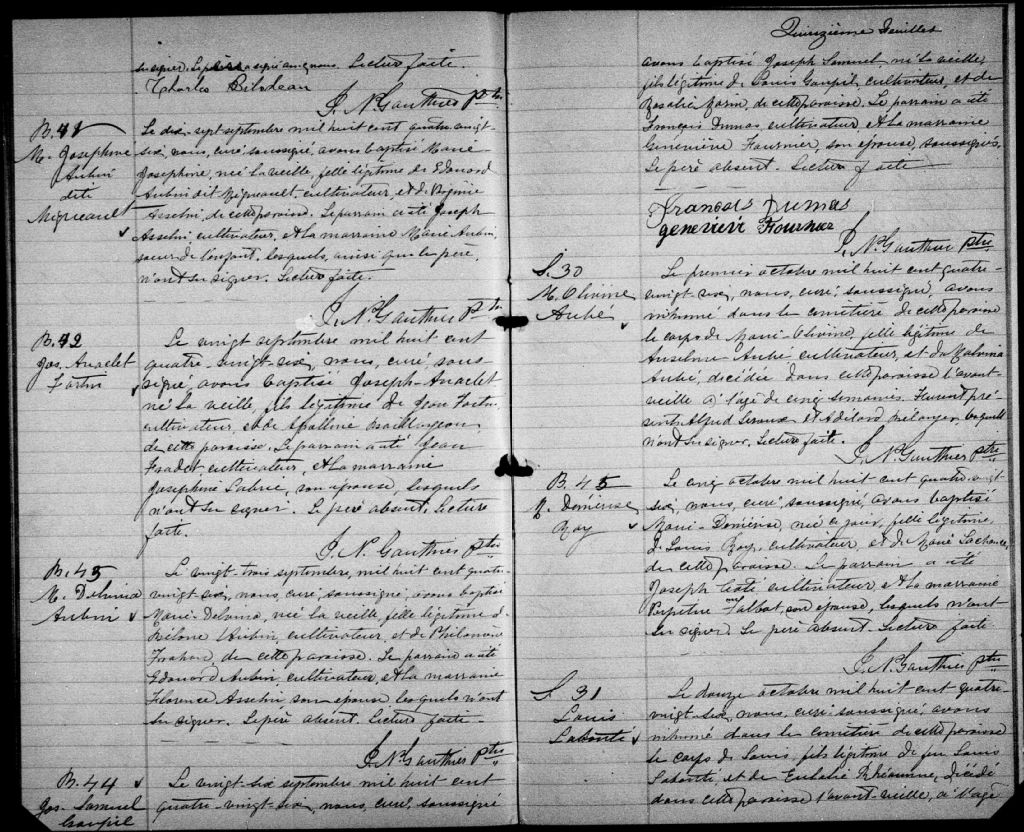 su signer. Le père a signé avec nous. Lecture faite.
Charles Bilodeau
J. N. Gauthier ptre
B. 41
M. Josephine
Aubin
dit
Migneault
Le dix-sept septembre mil huit cent quatre-vingt-
six, nous, curé soussigné, avons baptisé Marie
Josephine, née la veille, fille légitime de Edouard
Aubin dit Migneault, cultivateur, et de Virginie
Asselin, de cette paroisse. Le parrain a été Joseph
Asselin cultivateur, et la marraine Marie Aubin,
soeur de l'enfant, lesquels, ainsi que le père,
n'ont su signer. Lecture faite.
J. N. Gauthier Ptre
B. 42
Jos. Anaclet
Fortin
Le vingt septembre mil huit cent
quatre-vingt-six, nous, curé, sous-
signé, avons baptisé Joseph-Anaclet
né la veille, fils légitime de Jean Fortin,
cultivateur, et de Apolline
de cette paroisse. Le parrain a été Jean
Fradet cultivateur, et la marraine
Josephine Labrie, son épouse, lesquels
n'ont su signer. Le père absent. Lecture
faite.
J. N. Gauthier ptre
B. 43
M. Delvina
Aubin
Le vingt-trois septembre, mil huit cent quatre-
vingt-six, nous, curé, soussigné, avons baptisé
Marie-Delvina, née la veille, fille légitime d
Aubin, cultivateur, et de Philomène
Trahan, de cette paroisse. Le parrain a été
Edouard Aubin, cultivateur, et la marraine
Florence Asselin son épouse lesquels n'ont
su signer. Le père absent. Lecture faite.
J. N. Gauthier ptre
B. 44
Jos. Samuel
Goupil
Le vingt-six septembre mil huit cent
quatre-vingt-six, nous, curé, soussigné
Quinzième Feuillet
avons baptisé Joseph Samuel né la veille,
fils légitime de Louis Goupil, cultivateur, et de
Rosalie Morin, de cette paroisse. Le parrain a été
François Dumas, cultivateur et la marraine
Geneviève Fournier, son épouse, soussignés.
Le père absent. Lecture faite
Francois Dumas
genevievi Fournier
J. N. Gauthier ptre
S. 30
M. Olivine
Aubé
Le premier octobre mil huit cent quatre-
vingt-six, nous, curé, soussigné, avons
inhumé dans le cimetière de cette paroisse
le corps de Marie Olivine, fille légitime de
Anselme Aubé cultivateur, et de Malvina
Aubé, décédée dans cette paroisse l'avant-
veille à l'âge de cinq semaines. Furent pré-
sents Alfred et Adélard Bélanger, lesquels
n'ont su signer. Lecture faite.
J. N. Gauthier ptre
B. 45
M. Démérise
Roy
Le cinq octobre mil huit cent quatre-vingt-
six, nous, curé, soussigné, avons baptisé
Marie-Démérise, née ce jour, fille légitime,
de Louis Roy, cultivateur, et de Marie Lachance,
de cette paroisse. Le parrain a été
Joseph Côté cultivateur et la marraine
Perpétue Talbot, son épouse, lesquels n'ont
su signer. Le père absent. Lecture faite
J. N. Gauthier ptre
S. 31
Louis
Labonté
Le douze octobre mil huit cent quatre-
vingt-six, nous, curé soussigné, avons
inhumé dans le cimetière de cette paroisse
le corps de Louis, fils légitime de feu Louis
Labonté et de Eulalie Rhéaume, décédé
dans cette paroisse l'avant-veille, à l'âge